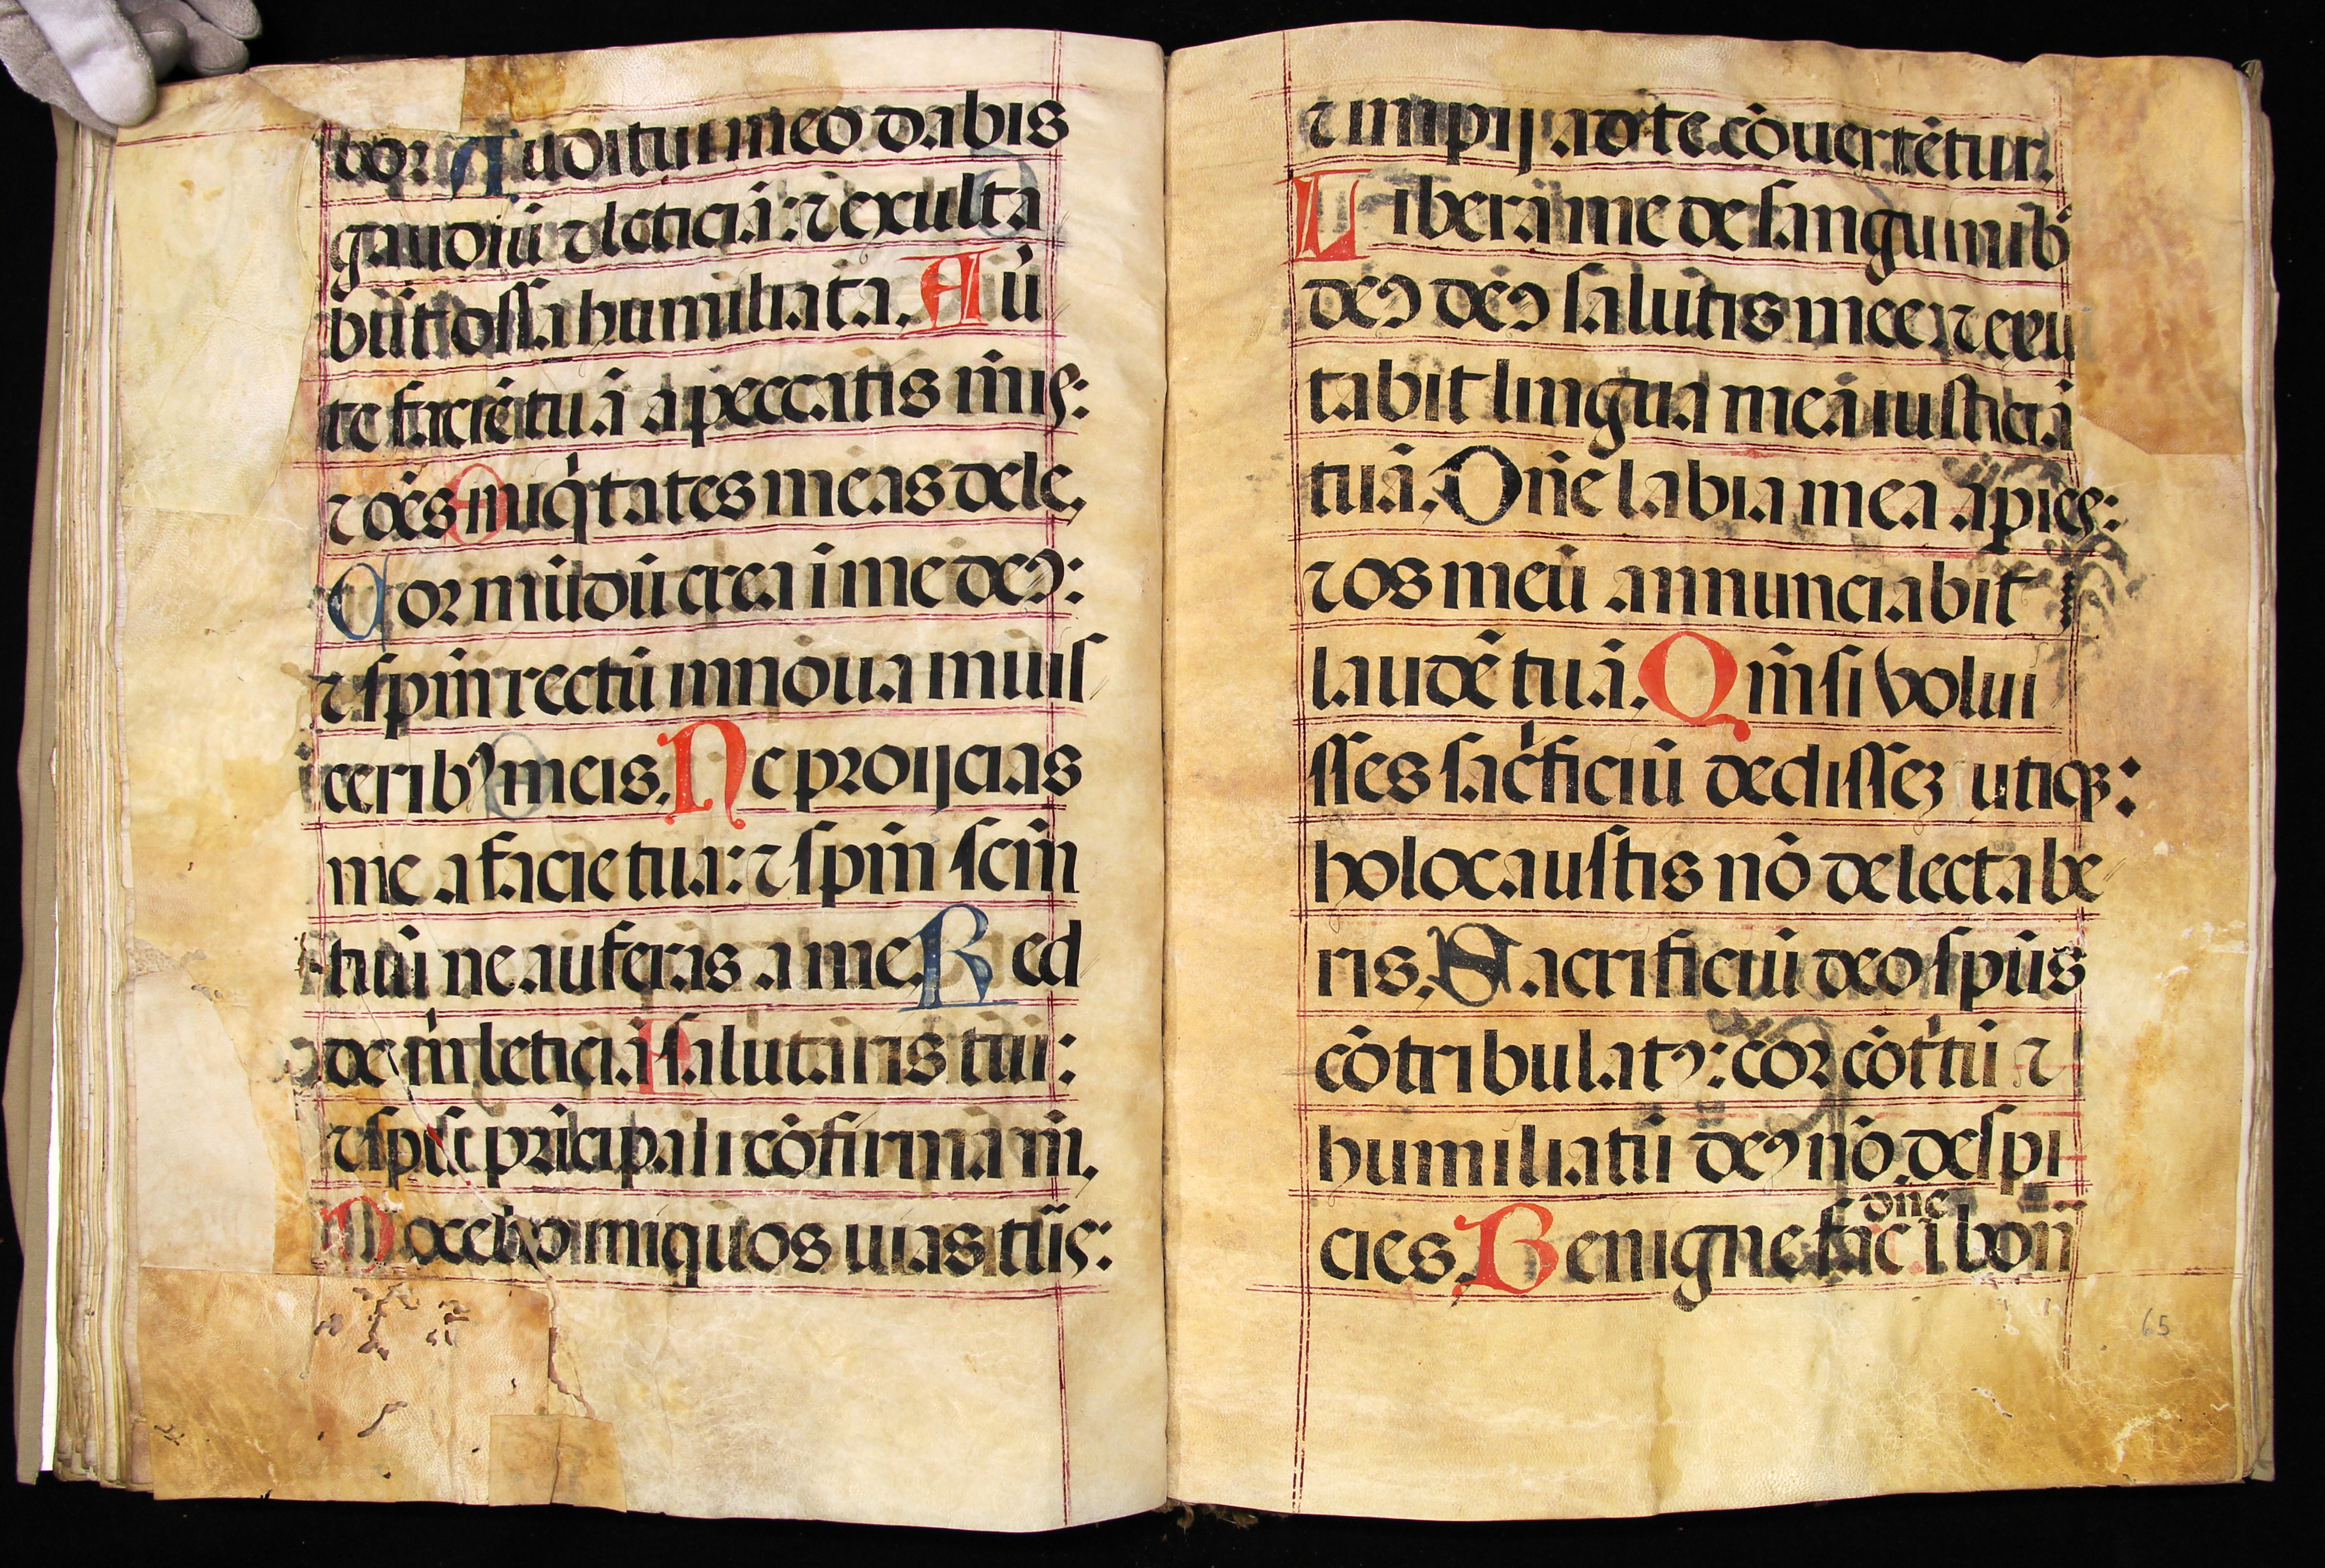 bor. Auditui meo dabis
gaudiū ⁊ leticiā: ⁊ exulta
būt ossa humiliata. Au̇
te faciē tuā a peccatis m̄is:
⁊ oēs iniq̇tates meas dele.
Cor mūdū crea i me deꝰ:
⁊ spm̄ rectū innoua in uis
ceribꝰ meis. Ne proijcias
me a facie tua: ⁊ spm̄ scm̄
tuū ne auferas a me. Red
de m̄ leticiā salutaris tui:
⁊ spū pricipali cōfirma m̄.
Docebo iniquos uias tūs:
⁊ impij ad te cōuertētur.
Libera me de sanguinibꝰ
deꝰ deꝰ salutis mee: ⁊ exu
tabit lingua mea iusticiā
tuā. Dn̄e labia mea apies:
⁊ os meū annunciabit
laudē tuā. Qm̄ si volui
sses sac̍ficiū dedisseʒ utiqꝫ:
holocaustis nō delectabe
ris. Sacrificiū deo spūs
cōtribulatꝰ: cor cōt̍tū ⁊
humiliatū deꝰ nō despi
cies. Benigne fac dn̄e ī bon̄
65